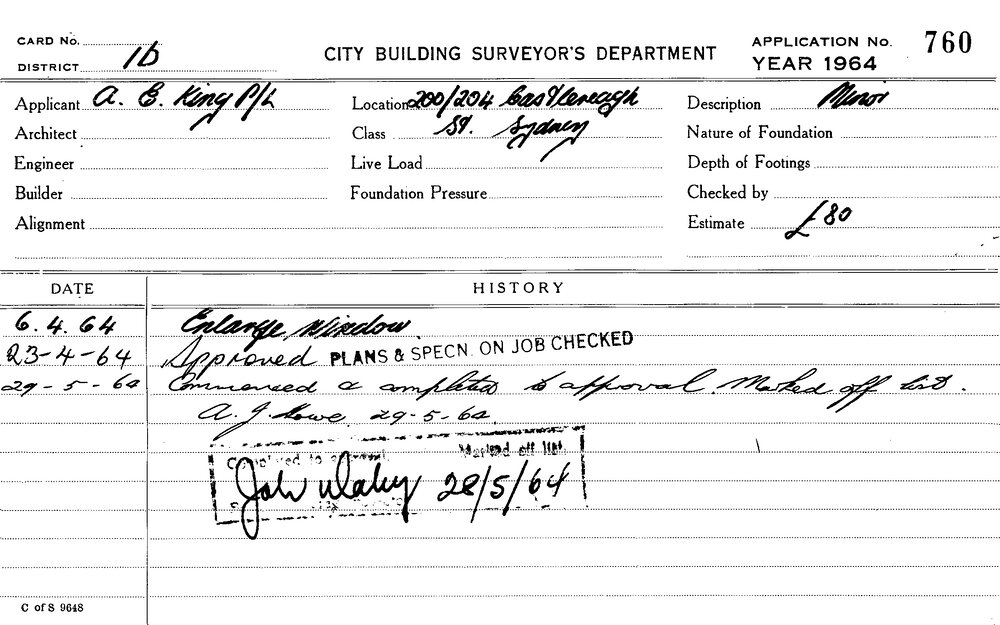 CARD No.
DISTRICT 1b
CITY BUILDING SURVEYOR'S DEPARTMENT
APPLICATION No. 760
YEAR 1964
Applicant A. E. King P/L
Location 200/204 Castlereagh
Description Minor
Architect
Class St. Sydney
Nature of Foundation
Engineer
Live Load
Depth of Footings
Builder
Foundation Pressure
Checked by
Alignment
Estimate £80
DATE HISTORY
6.4.64 Enlarge Window.
23-4-64 Approved PLANS & SPECN. ON JOB CHECKED
29-5-64 Commenced & completed to approval. Marked off list.
A. J. Howe 29-5-64
Completed to approval Marked off list
John 28/5/64
C of S 9648